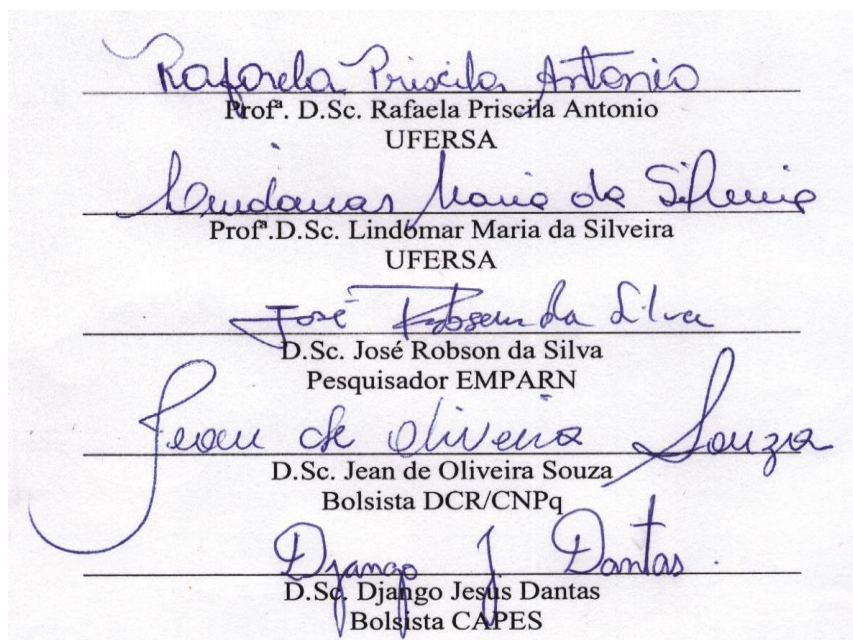 Rafaela Priscila Antonio
Profª. D.Sc. Rafaela Priscila Antonio
UFERSA
Lindomar Maria da Silveira
Profª.D.Sc. Lindomar Maria da Silveira
UFERSA
José Robson da Silva
D.Sc. José Robson da Silva
Pesquisador EMPARN
Jean de Oliveira Souza
D.Sc. Jean de Oliveira Souza
Bolsista DCR/CNPq
Django J Dantas
D.Sc. Django Jesus Dantas
Bolsista CAPES